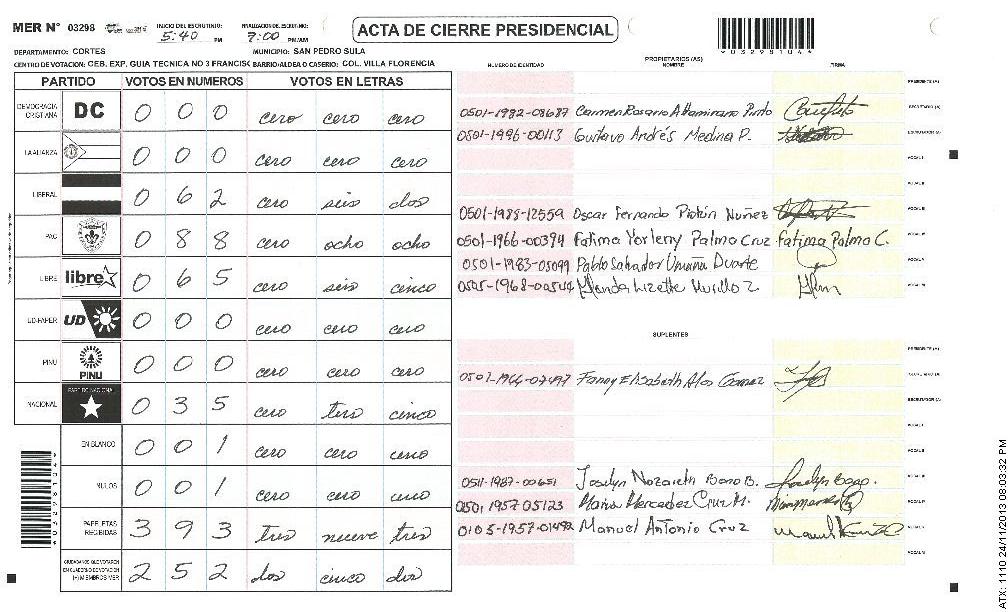 MER N° 03298 INICIO DEL ESCRUTINIO: 5:40 PM FINALIZACION DEL ESCRUTINIO: 7:00 PM/AM
ACTA DE CIERRE PRESIDENCIAL
032981044
DEPARTAMENTO: CORTES MUNICIPIO: SAN PEDRO SULA
CENTRO DE VOTACION: CEB. EXP. GUIA TECNICA NO 3 FRANCISC BARRIO/ALDEA O CASERIO: COL. VILLA FLORENCIA
PARTIDO VOTOS EN NUMEROS VOTOS EN LETRAS
DEMOCRACIA CRISTIANA DC 0 0 0 cero cero cero
LA ALIANZA 0 0 0 cero cero cero
LIBERAL 0 6 2 cero seis dos
PAC 0 8 8 cero ocho ocho
LIBRE libre 0 6 5 cero seis cinco
UD-FAPER UD 0 0 0 cero cero cero
PINU PINU 0 0 0 cero cero cero
NACIONAL PARTIDO NACIONAL 0 3 5 cero tres cinco
EN BLANCO 0 0 1 cero cero uno
NULOS 0 0 1 cero cero uno
PAPELETAS RECIBIDAS 3 9 3 tres nueve tres
CIUDADANOS QUE VOTARON EN CUADERNO DE VOTACION (+) MIEMBROS MER 2 5 2 dos cinco dos
PROPIETARIOS (AS)
NUMERO DE IDENTIDAD NOMBRE FIRMA
PRESIDENTE (A)
0501-1982-08687 Carmen Rosario Altamirano Pinto SECRETARIO (A)
0501-1996-00113 Gustavo Andrés Medina P. ESCRUTADOR (A)
VOCAL I
VOCAL II
0501-1988-12559 Oscar Fernando Nuñez VOCAL III
0501-1966-00394 Fatima Yorleny Palma Cruz Fatima Palma C. VOCAL IV
0501-1983-05099 Pablo Salvador Umaña Duarte VOCAL V
0505-1968-00544 Lizette Murillo Z. VOCAL VI
SUPLENTES
PRESIDENTE (A)
Fanny Elisabeth Gomez SECRETARIO (A)
ESCRUTADOR (A)
VOCAL I
VOCAL II
0511-1987-00651 Joselyn Nazareth Bano B. VOCAL III
0501-1957-05123 Maria Mercedez Cruz M. VOCAL IV
Manuel Antonio Cruz VOCAL V
VOCAL VI
ATX: 1110 24/11/2013 08:03:32 PM